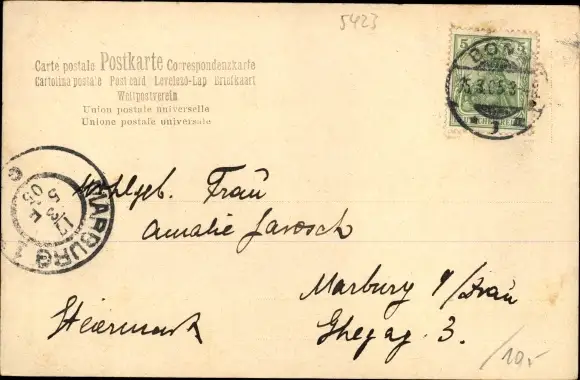 5423
Carte postale Postkarte Correspondenzkarte
Cartolina postale Post card Levelező-Lap Briefkaart
Weltpostverein
Union postale universelle
Unione postale universale
5
BONN
MARBURG 1
Wohlgeb. Frau
Amalie Jarosch
Marburg a/Drau
Steiermark
Ghegag. 3.
10,-